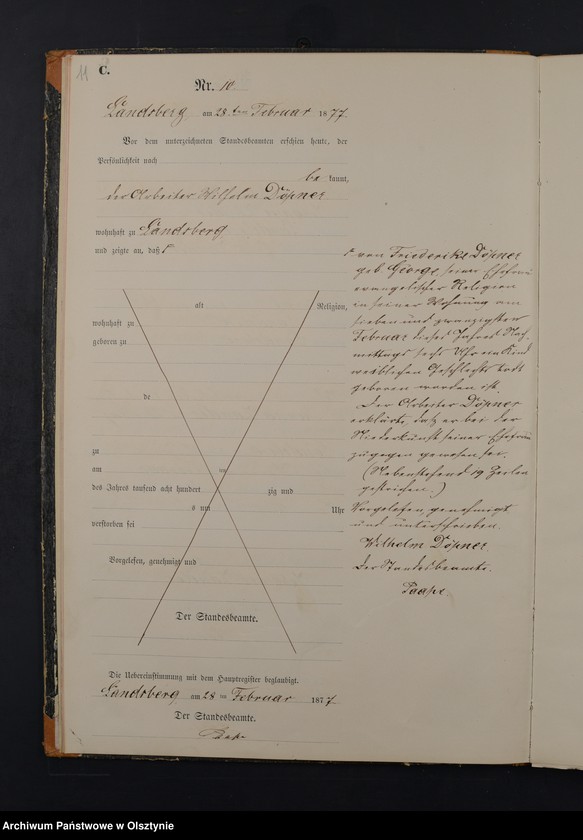 11
C.
Nr. 10
Landsberg am 28 ten Februar 1877
Vor dem unterzeichneten Standesbeamten erschien heute, der
Persönlichkeit nach
be kannt,
der Arbeiter Wilhelm Döpner
wohnhaft zu Landsberg
und zeigte an, daß
von Friederike Döpner
geb George, seiner Ehefrau
evangelischer Religion
in seiner Wohnung am
sieben und zwanzigsten
Februar dieses Jahres Nach-
mittags sechs Uhr ein Kind
weiblichen Geschlechts todt
geboren worden ist.
Der Arbeiter Döpner
erklärte, daß er bei der
Niederkunft seiner Ehefrau
zugegen gewesen sei.
(Nebenstehend 19 Zeilen
gestrichen.)
Vorgelesen, genehmigt
und unterschrieben.
Wilhelm Döpner
Der Standesbeamte.
Paape.
alt Religion,
wohnhaft zu
geboren zu
de
zu
am
des Jahres tausend acht hundert zig und
s um Uhr
verstorben sei
Vorgelesen, genehmigt und
Der Standesbeamte.
Die Uebereinstimmung mit dem Hauptregister beglaubigt.
Landsberg am 28 ten Februar 1877
Der Standesbeamte.
Archiwum Państwowe w Olsztynie